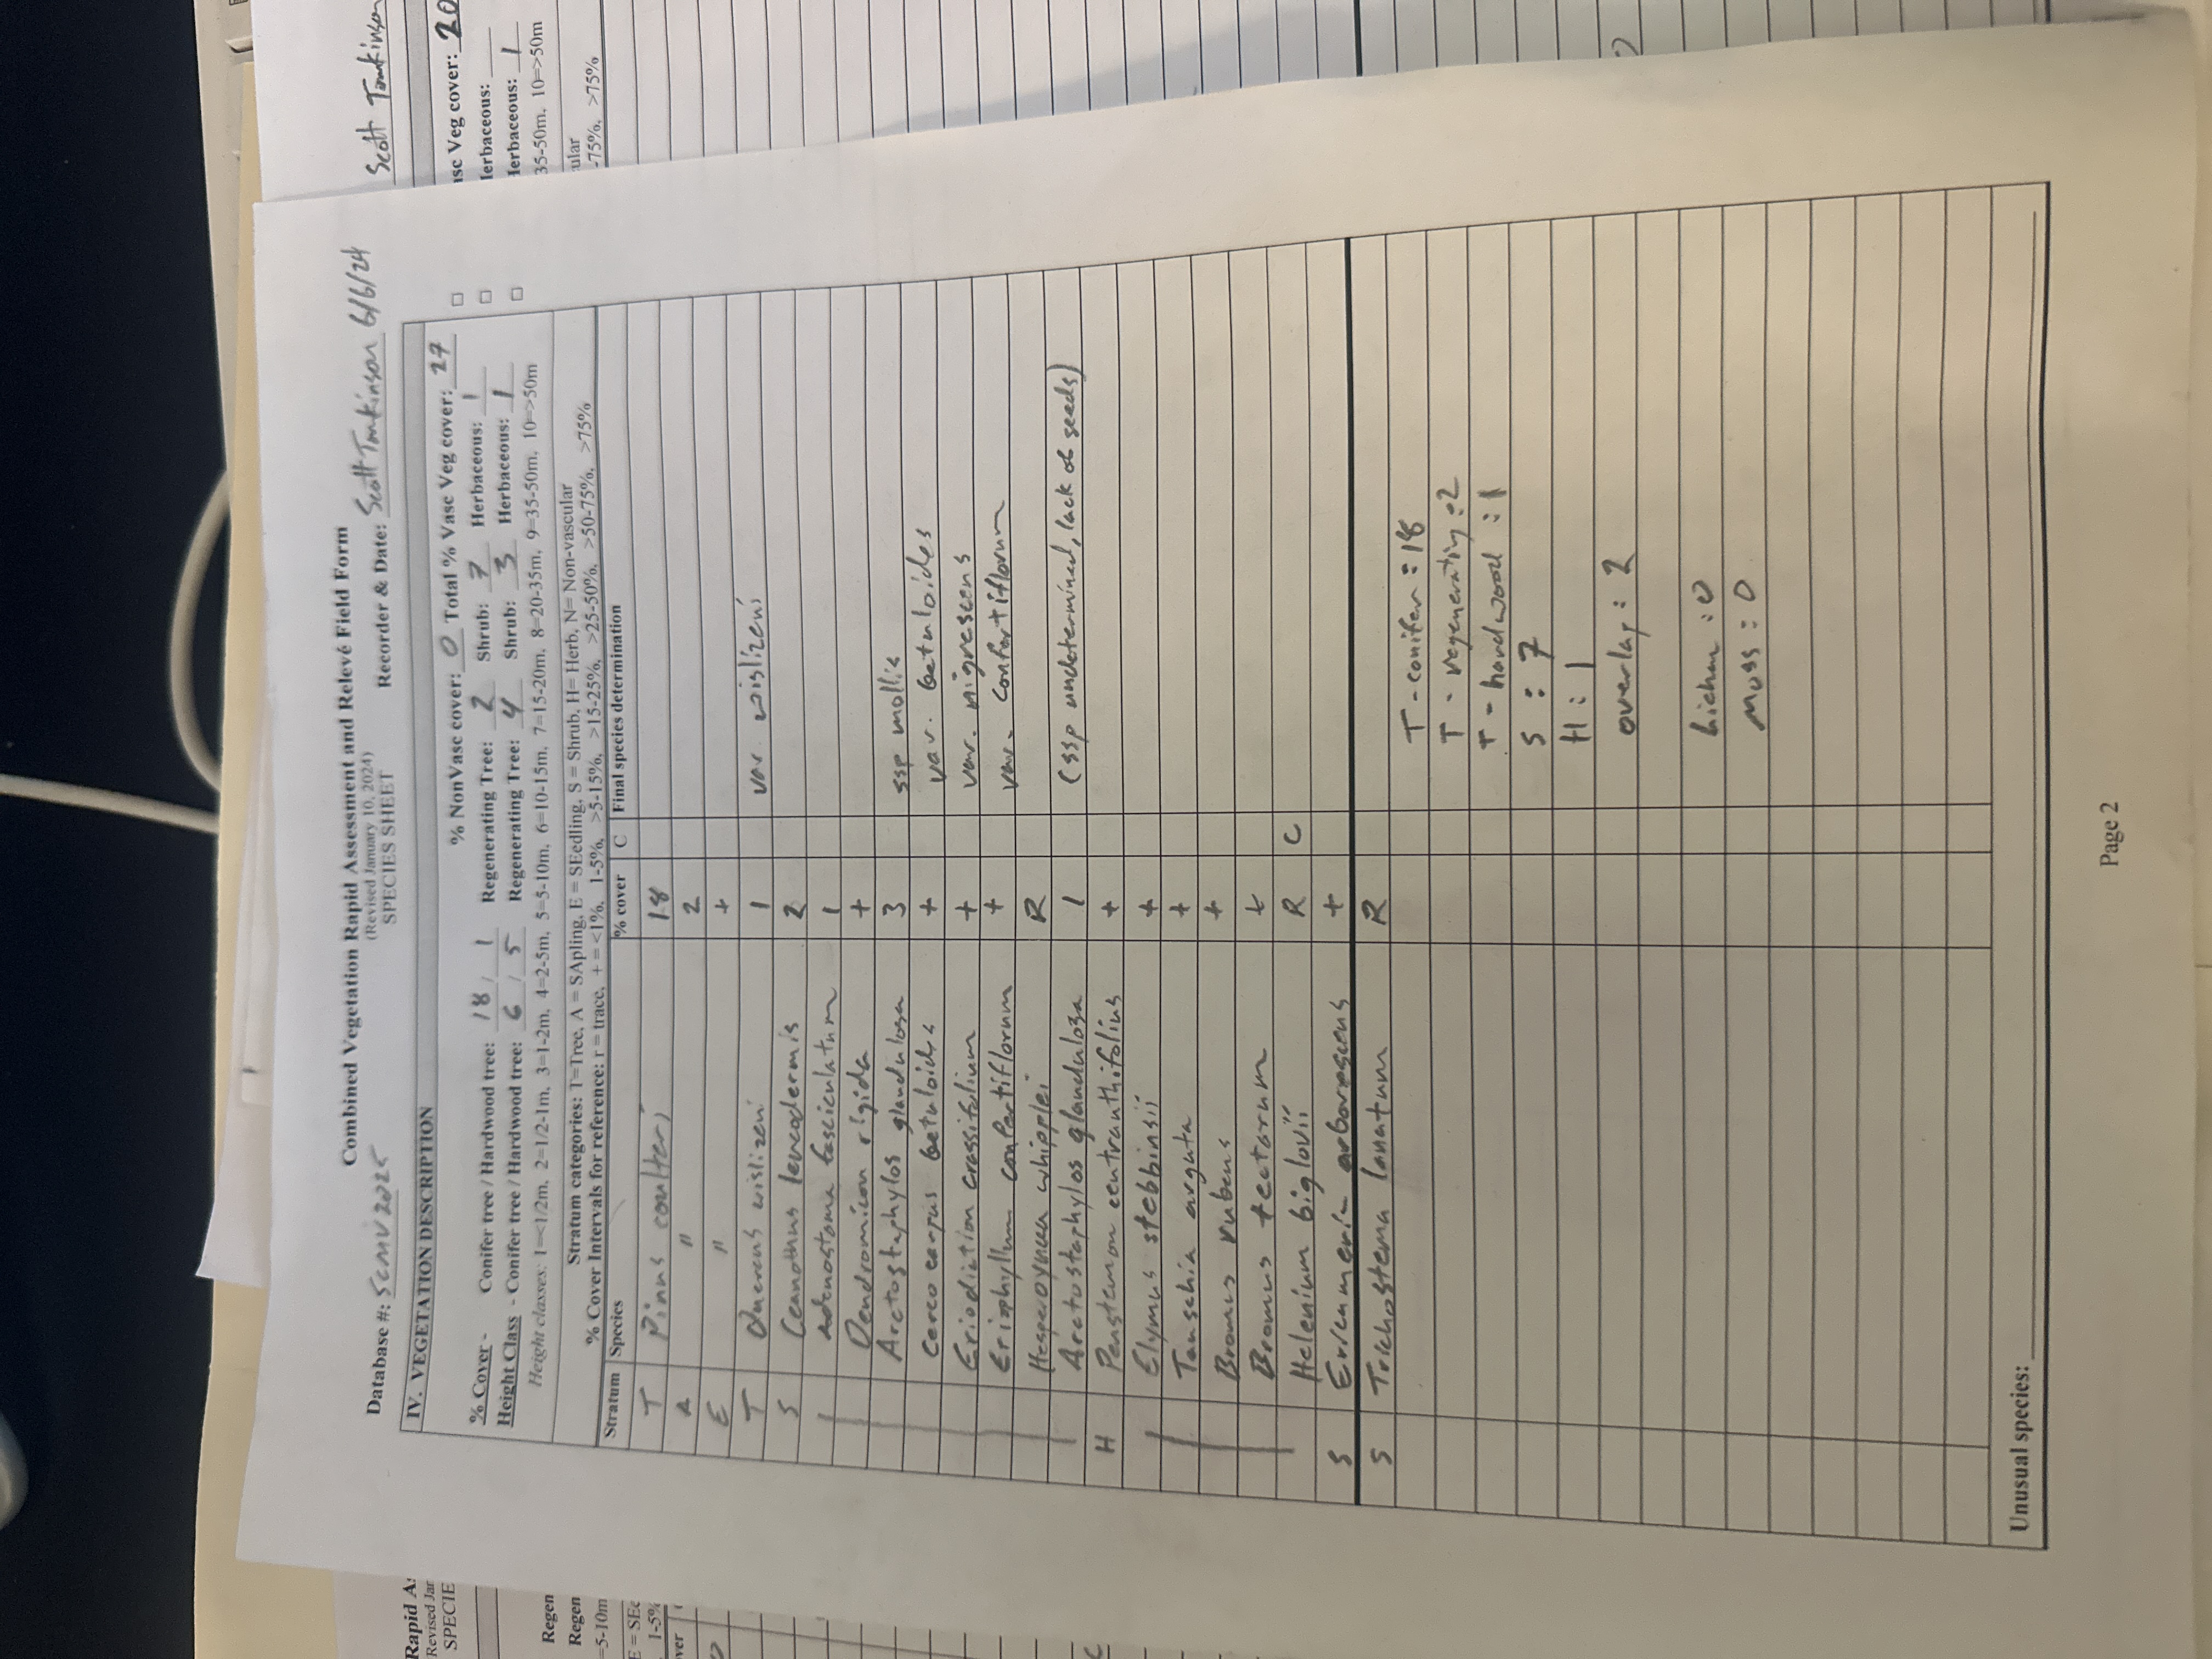 Combined Vegetation Rapid Assessment and Relevé Field Form
(Revised January 10, 2024)
SPECIES SHEET
Database #: SCMIV2025 Recorder & Date: Scott Tomkinson 6/6/24
IV. VEGETATION DESCRIPTION
% NonVasc cover: 0 Total % Vasc Veg cover: 27
% Cover - Conifer tree / Hardwood tree: 18 / 1 Regenerating Tree: 2 Shrub: 7 Herbaceous: 1
Height Class - Conifer tree / Hardwood tree: 6 / 5 Regenerating Tree: 4 Shrub: 3 Herbaceous: 1
Height classes: 1=<1/2m, 2=1/2-1m, 3=1-2m, 4=2-5m, 5=5-10m, 6=10-15m, 7=15-20m, 8=20-35m, 9=35-50m, 10=>50m
Stratum categories: T=Tree, A = SApling, E = SEedling, S = Shrub, H= Herb, N= Non-vascular
% Cover Intervals for reference: r = trace, + = <1%, 1-5%, >5-15%, >15-25%, >25-50%, >50-75%, >75%
Stratum Species % cover C Final species determination
T Pinus coulteri 18
A " 2
E " +
T Quercus wislizeni 1 var. wislizeni
S Ceanothus leucodermis 2
Adenostoma fasciculatum 1
Dendromicon rigida +
Arctostaphylos glandulosa 3 ssp mollis
Cercocarpus betuloides + var. betuloides
Eriodiction crassifolium + var. nigrescens
Eriophyllum confertiflorum + var. confertiflorum
Hesperoyucca whipplei R
Arctostaphylos glandulosa 1 (ssp undetermined, lack of seeds)
H Penstemon centranthifolius +
Elymus stebbinsii +
Tauschia arguta +
Bromus rubens +
Bromus tectorum +
Helenium biglovii R C
S Ericameria arborescens +
S Trichostema lanatum R
T-conifer : 18
T - regenerating : 2
T - hardwood : 1
S : 7
H : 1
overlap : 2
lichen : 0
moss : 0
Unusual species:
Page 2
Scott Tomkinson
asc Veg cover: 20
Herbaceous:
Herbaceous: 1
35-50m, 10=>50m
ular
-75%, >75%
Rapid A
Revised Jar
SPECIE
Regen
Regen
=5-10m
E = SEe
1-5%
over